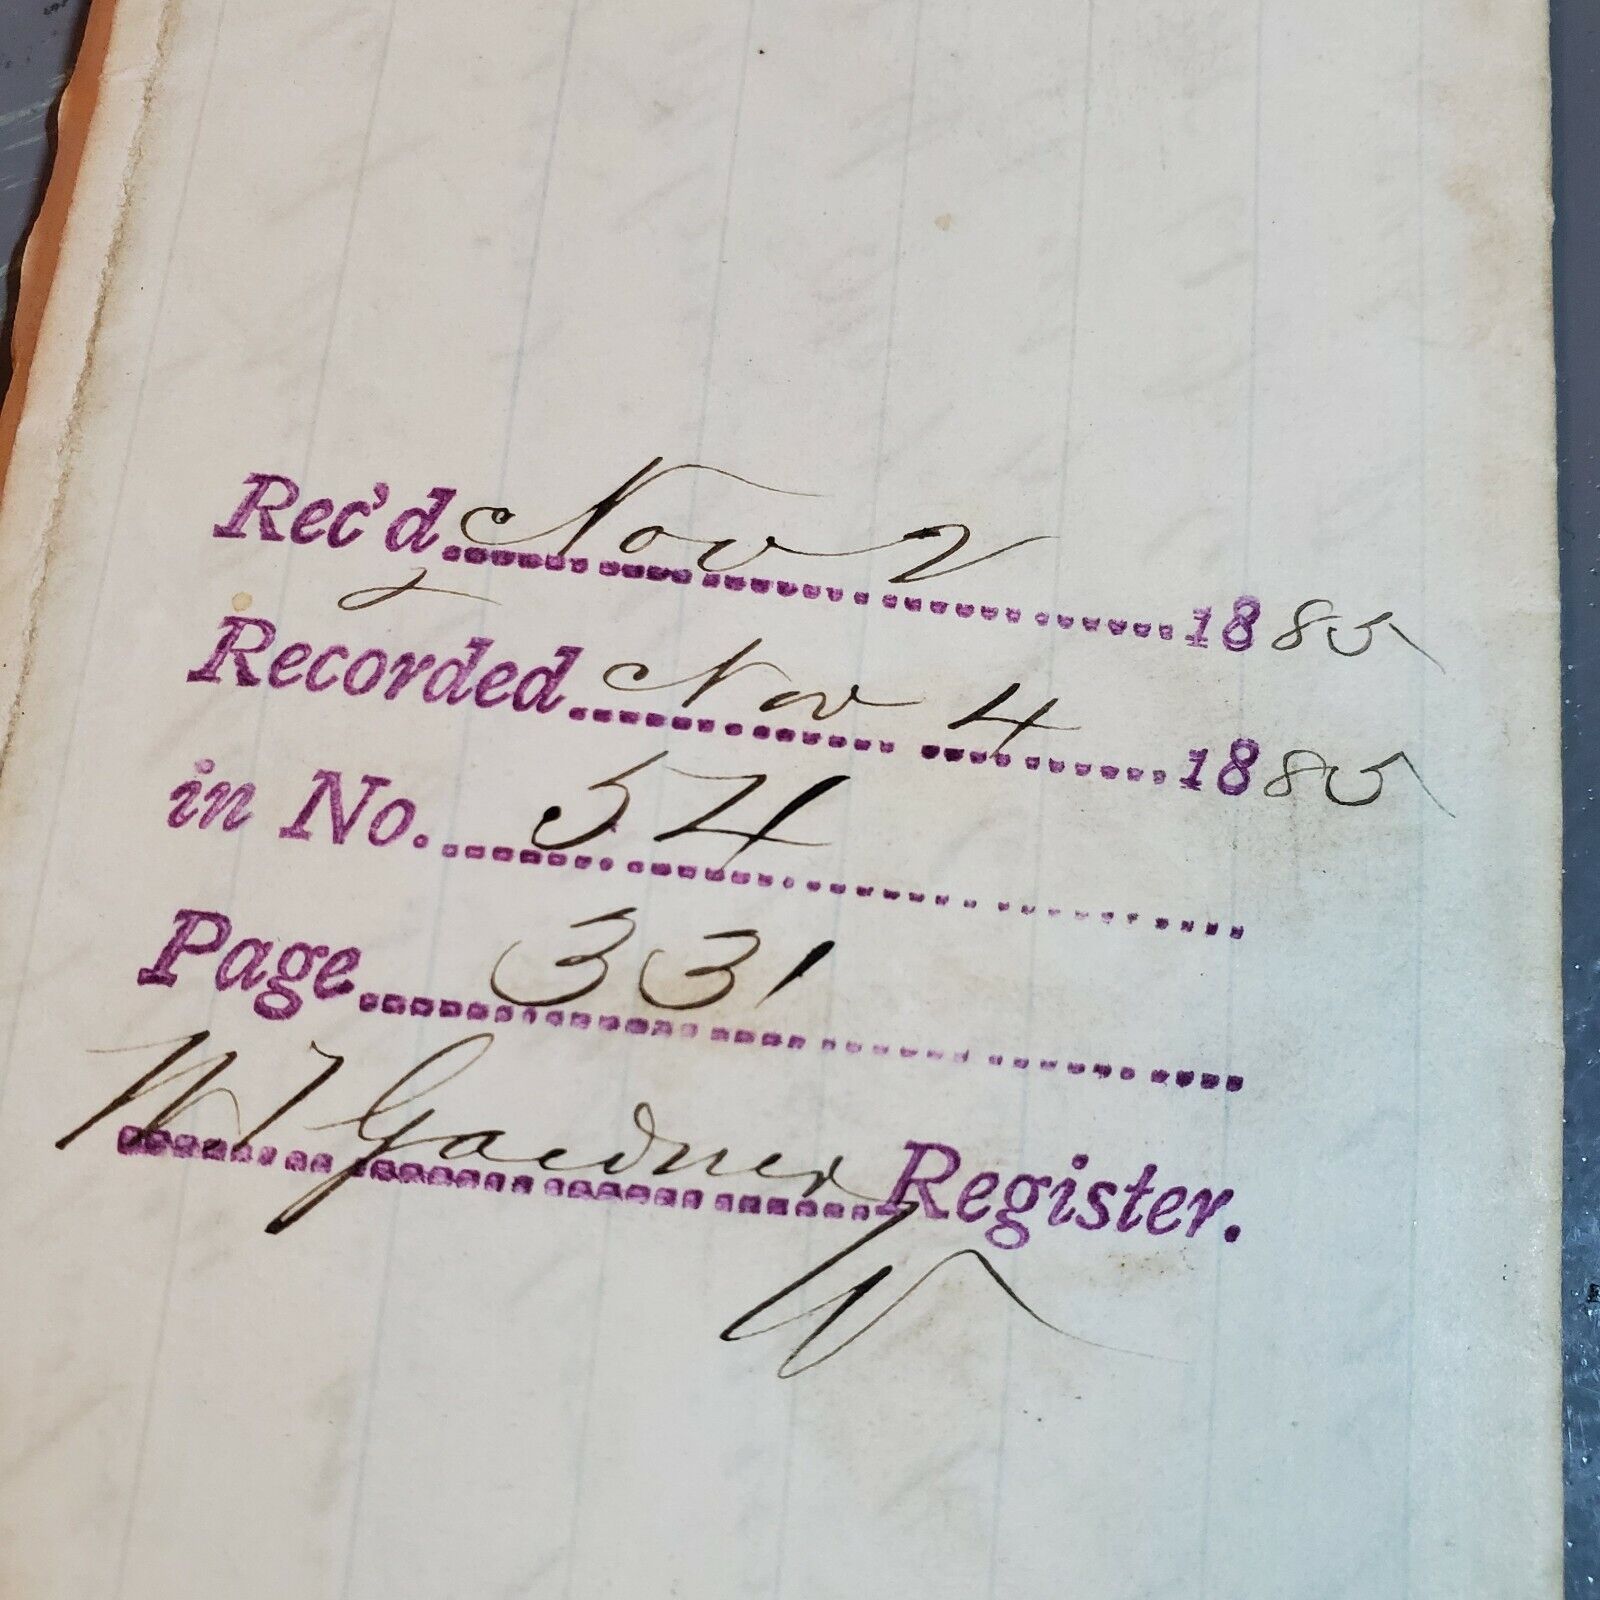 Rec'd Nov 2 1885
Recorded Nov 4 1885
in No. 54
Page 331
W T Gardner Register.